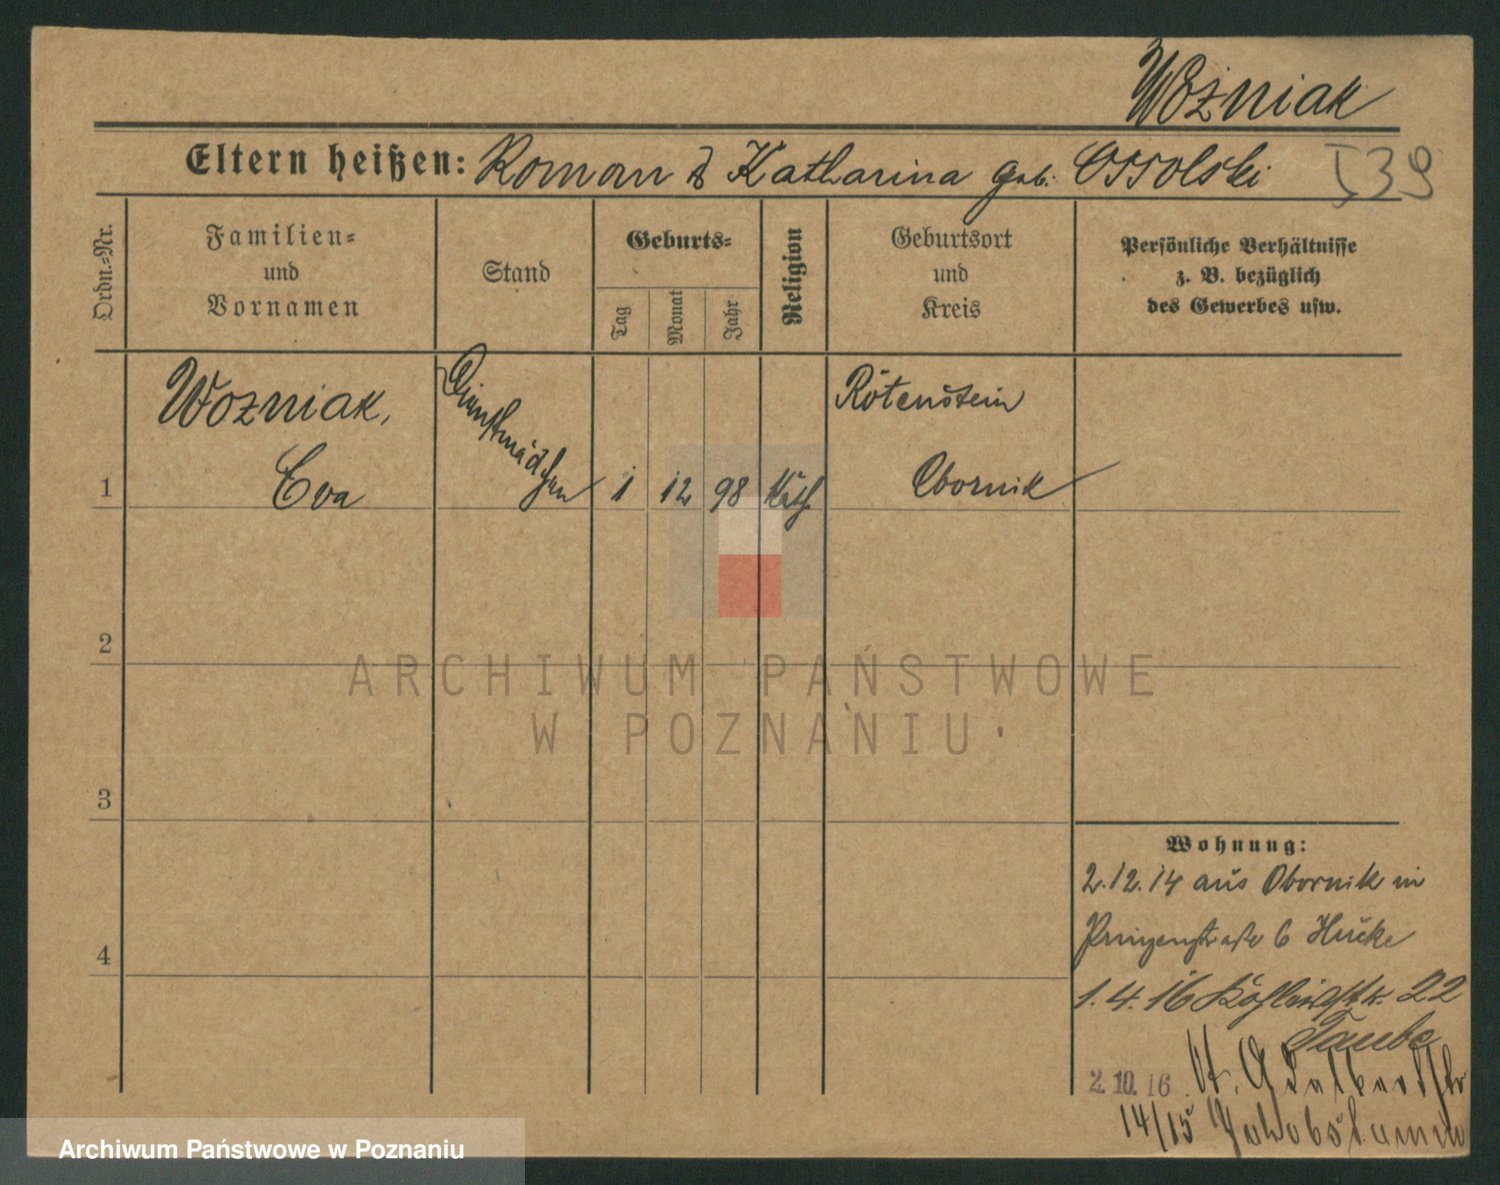 Woźniak
Eltern heißen: Roman & Katharina geb. Ossolski
Ordn.-Nr.
Familien-
und
Vornamen
Stand
Geburts-
Tag
Monat
Jahr
Religion
Geburtsort
und
Kreis
Persönliche Verhältnisse
z. B. bezüglich
des Gewerbes usw.
Wozniak,
Eva
Dienstmädchen
1
1 12 98 Kath.
Rotenstein
Obornik
2
3
4
Wohnung:
2.12.14 aus Obornik in
Prinzenstraße 6 Hucke
1.4.16 22
Taube
2.10.16 St. Adalbertstr
14/15
ARCHIWUM PAŃSTWOWE
W POZNANIU
Archiwum Państwowe w Poznaniu